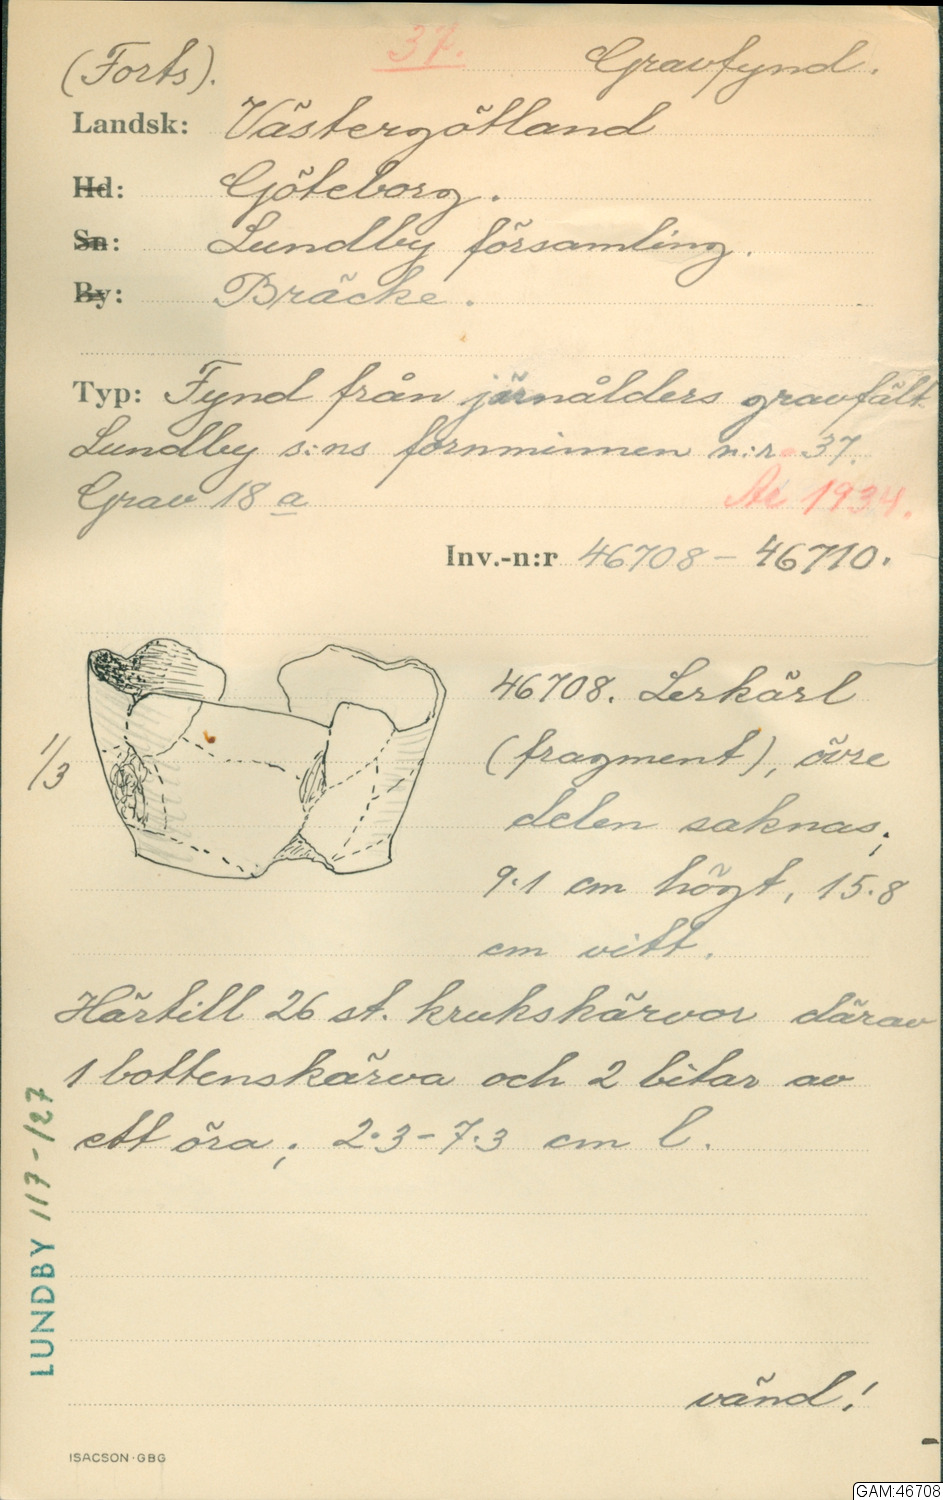 (Forts). 37. Gravfynd.
Landsk: Västergötland
Hd: Göteborg.
Sn: Lundby församling.
By: Bräcke.
Typ: Fynd från järnålders gravfält
Lundby s:ns fornminnen n:r 37.
Grav 18 a Ar 1934.
Inv.-n:r 46708 – 46710.
1/3
46708. Lerkärl
(fragment), övre
delen saknas;
9.1 cm högt, 15.8
cm vitt.
Härtill 26 st. krukskärvor därav
1 bottenskärva och 2 bitar av
ett öra; 2.3–7.3 cm l.
LUNDBY 117-127
vänd!
ISACSON·GBG
GAM:46708